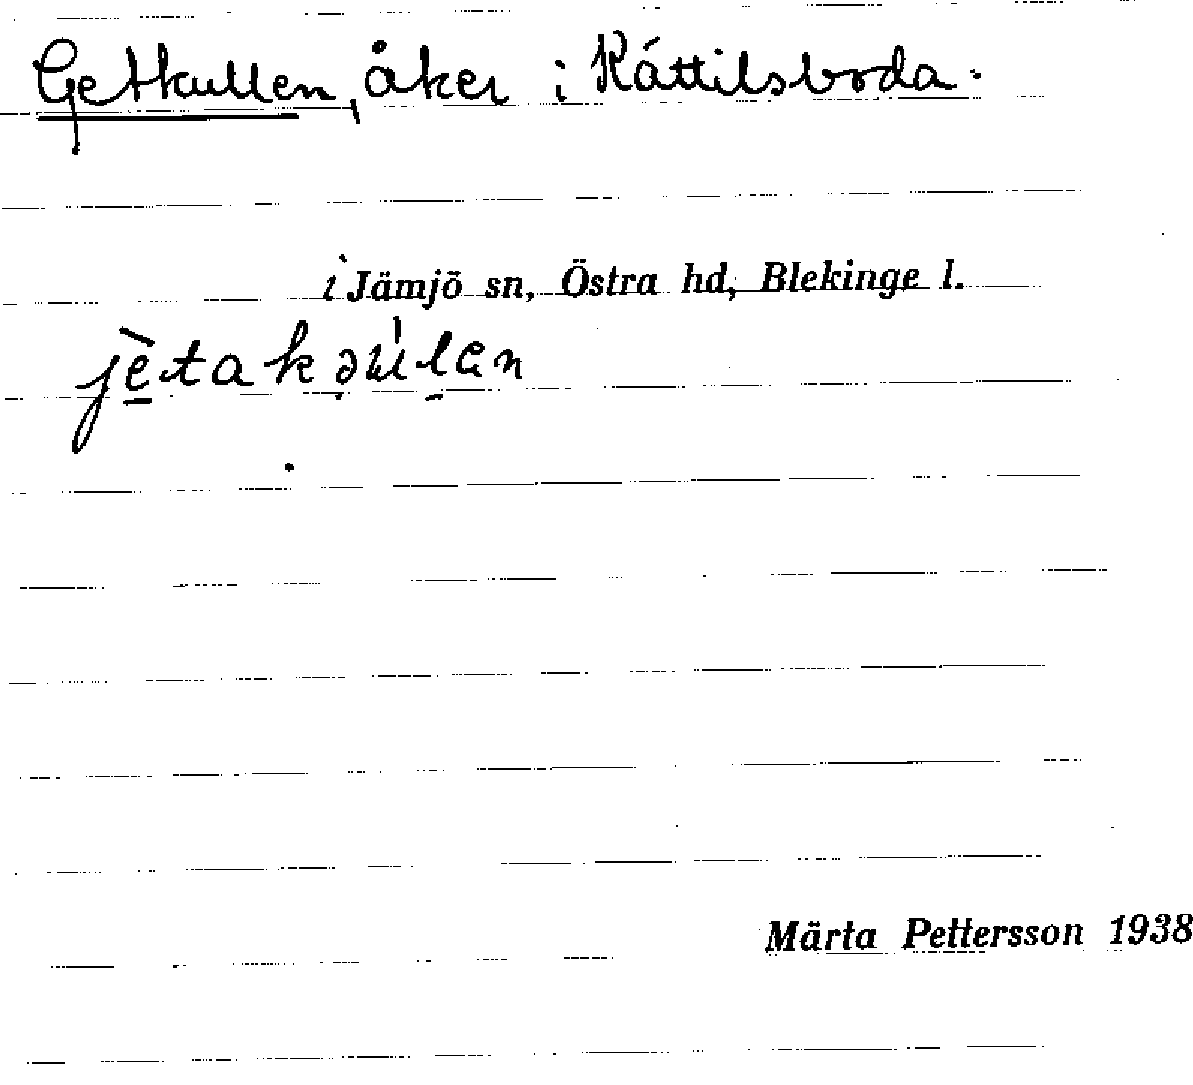 Getkullen, åker i Kättilsboda.
i Jämjö sn, Östra hd, Blekinge l.
jètakəúlen
Märta Pettersson 1938